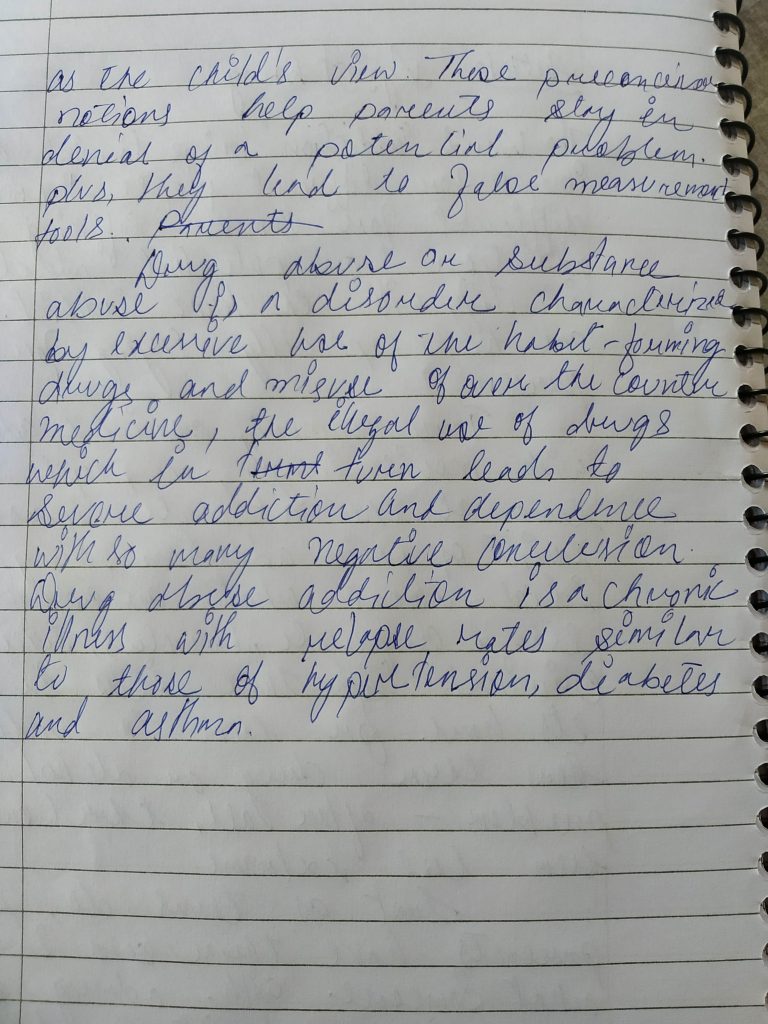 as the child's view. These preconceived
notions help parents stay in
denial of a potential problem.
plus, they lend to false measurement
tools. Parents
Drug abuse or substance
abuse is a disorder characterized
by excessive use of the habit-forming
drugs and misuse of over the counter
medicine, the illegal use of drugs
which in turn leads to
severe addiction and dependence
with so many negative conclusion.
Drug abuse addiction is a chronic
illness with relapse rates similar
to those of hypertension, diabetes
and asthma.